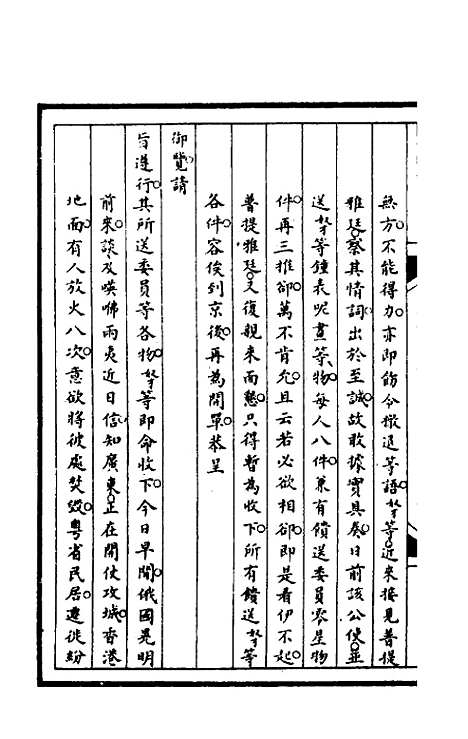 無方不能得力亦即飭令撤退等語奴才等近來接見普提
雅廷察其情詞出於至誠故敢據實具奏日前該公使並
送奴才等鐘表呢畫等物每人八件兼有饋送委員零星物
件再三推卻萬不肯允且云若必欲相卻即是看伊不起
普提雅廷又復親來面懇只得暫為收下所有饋送奴才等
各件容俟到京後再為開單恭呈
御覽請
旨遵行其所送委員等各物奴才等即命收下今日早間俄國晃明
前來談及嘆咈兩夷近日信知廣東正在開仗攻城香港
地面有人放火八次意欲將彼處焚燬粵省民居遷徙紛